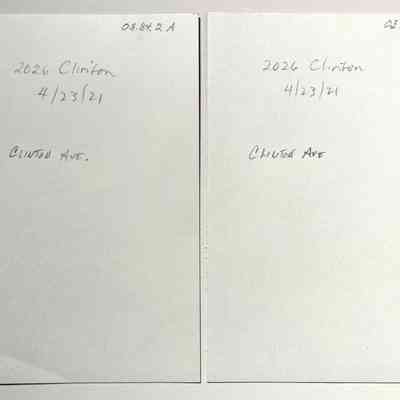 08.84.2 A
2026 Clinton
4/23/21
CLINTON AVE.
2026 Clinton
4/23/21
CLINTON AVE